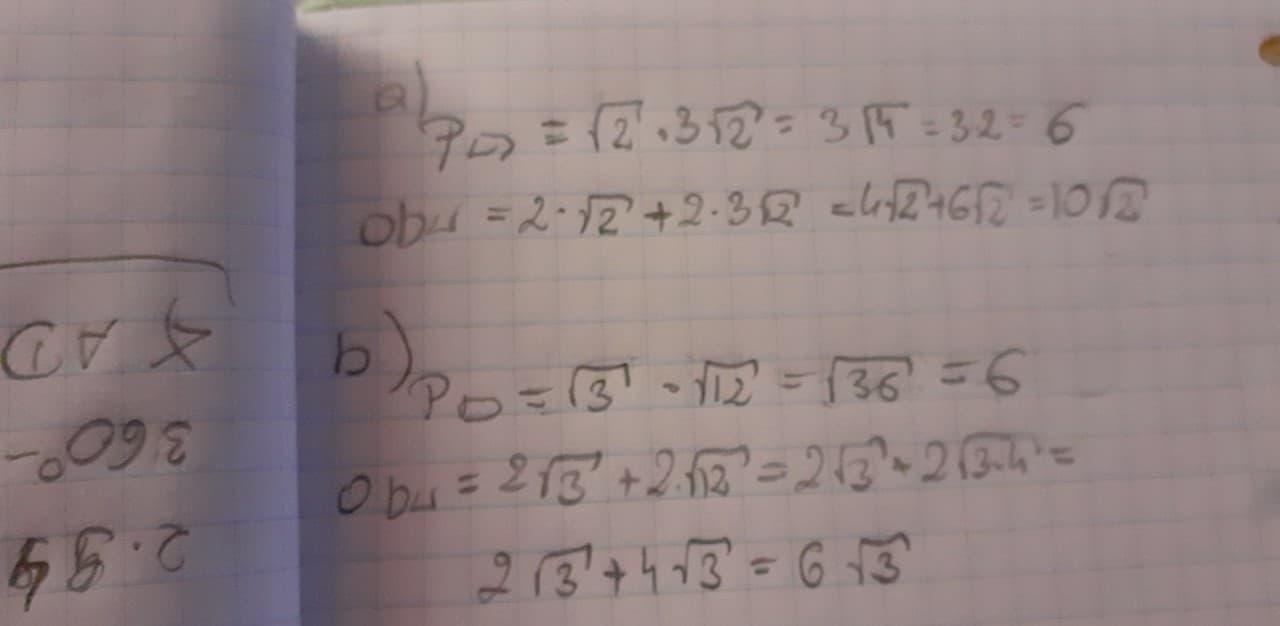 a) P▭ = √2 · 3√2 = 3√4 = 3·2 = 6
Obw = 2·√2 + 2·3√2 = 4√2+6√2 = 10√2
b) P▭ = √3 · √12 = √36 = 6
Obw = 2√3 + 2·√12 = 2√3 + 2√3·4 =
2√3 + 4√3 = 6√3
360°-